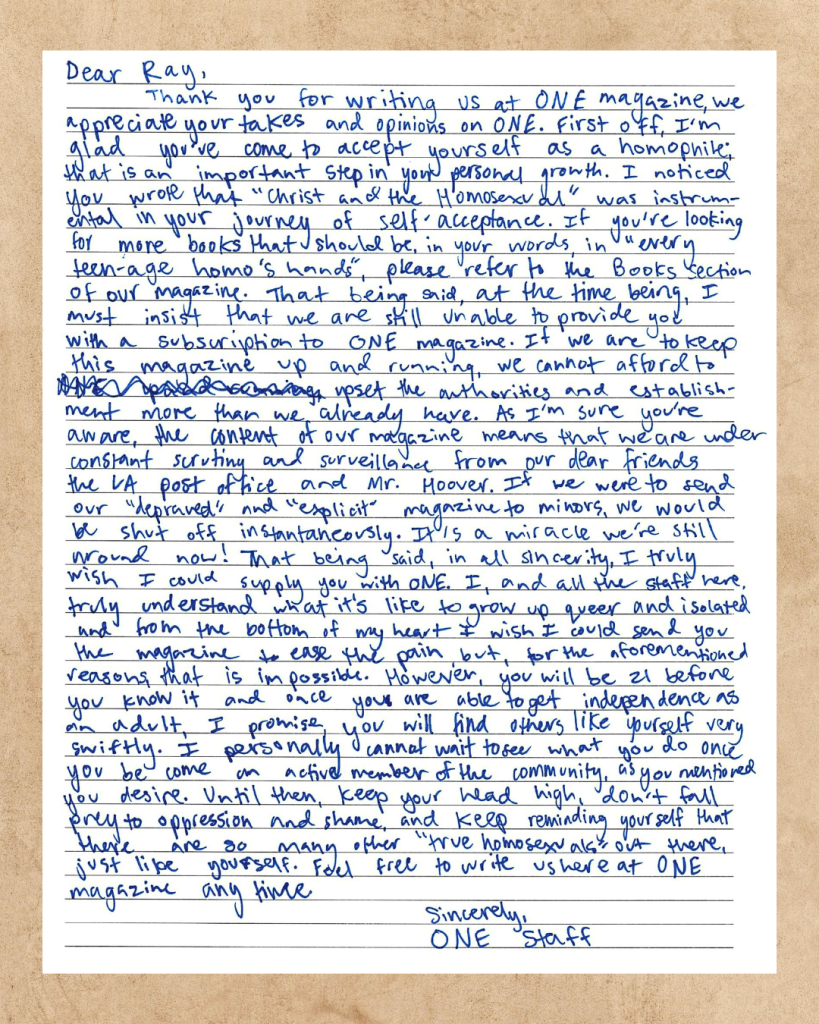 Dear Ray,
Thank you for writing us at ONE magazine, we
appreciate your takes and opinions on ONE. First off, I'm
glad you've come to accept yourself as a homophile;
that is an important step in your personal growth. I noticed
you wrote that "Christ and the Homosexual" was instrum-
ental in your journey of self-acceptance. If you're looking
for more books that should be, in your words, in "every
teen-age homo's hands", please refer to the Books section
of our magazine. That being said, at the time being, I
must insist that we are still unable to provide you
with a subscription to ONE magazine. If we are to keep
this magazine up and running, we cannot afford to
upset the authorities and establish-
ment more than we already have. As I'm sure you're
aware, the content of our magazine means that we are under
constant scrutiny and surveillance from our dear friends
the LA post office and Mr. Hoover. If we were to send
our "depraved" and "explicit" magazine to minors, we would
be shut off instantaneously. It's a miracle we're still
around now! That being said, in all sincerity, I truly
wish I could supply you with ONE. I, and all the staff here,
truly understand what it's like to grow up queer and isolated
and from the bottom of my heart I wish I could send you
the magazine to ease the pain but, for the aforementioned
reasons, that is impossible. However, you will be 21 before
you know it and once you are able to get independence as
an adult, I promise, you will find others like yourself very
swiftly. I personally cannot wait to see what you do once
you become an active member of the community, as you mentioned
you desire. Until then, keep your head high, don't fall
prey to oppression and shame, and keep reminding yourself that
there are so many other "true homosexuals" out there,
just like yourself. Feel free to write us here at ONE
magazine any time
Sincerely,
ONE Staff